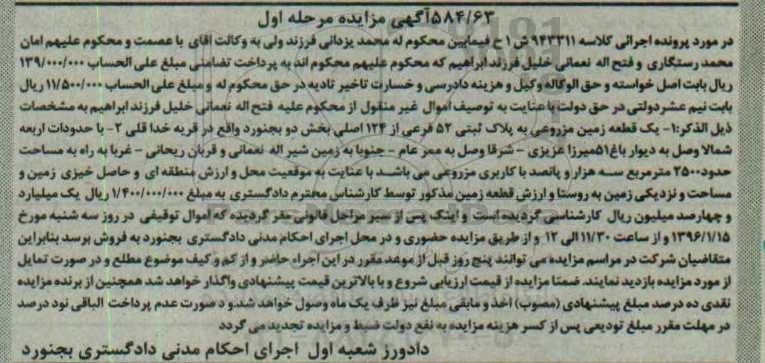 ۵۸۴/۶۳آگهی مزایده مرحله اول
در مورد پرونده اجرائی کلاسه ۹۴۳۳۱۱ ش ۱ ح فیمابین محکوم له محمد یزدانی فرزند ولی به وکالت آقای با عصمت و محکوم علیهم امان
محمد رستگاری و فتح اله نعمانی خلیل فرزند ابراهیم که محکوم علیهم محکوم اند به پرداخت تضامنی مبلغ علی الحساب ۱۳۹/۰۰۰/۰۰۰
ریال بابت اصل خواسته و حق الوکاله وکیل و هزینه دادرسی و خسارت تاخیر تادیه در حق محکوم له و مبلغ علی الحساب ۱۱/۵۰۰/۰۰۰ ریال
بابت نیم عشر دولتی در حق دولت با عنایت به توصیف اموال غیر منقول از محکوم علیه فتح اله نعمانی خلیل فرزند ابراهیم به مشخصات
ذیل الذکر:۱- یک قطعه زمین مزروعی به پلاک ثبتی ۵۲ فرعی از ۱۲۴ اصلی بخش دو بجنورد واقع در قریه خدا قلی ۲- با حدودات اربعه
شمالا وصل به دیوار باغ۵۱میرزا عزیزی - شرقا وصل به ممر عام - جنوبا به زمین شیر اله نعمانی و قربان ریحانی - غربا به راه به مساحت
حدود۳۵۰۰ مترمربع سه هزار و پانصد با کاربری مزروعی می باشد با عنایت به موقعیت محل و ارزش منطقه ای و حاصل خیزی زمین و
مساحت و نزدیکی زمین به روستا و ارزش قطعه زمین مذکور توسط کارشناس محترم دادگستری به مبلغ ۱/۴۰۰/۰۰۰/۰۰۰ ریال یک میلیارد
و چهارصد میلیون ریال کارشناسی گردیده است و اینک پس از سیر مراحل قانونی مقر گردیده که اموال توقیفی در روز سه شنبه مورخ
۱۳۹۶/۱/۱۵ و از ساعت ۱۱/۳۰ الی ۱۲ و از طریق مزایده حضوری و در محل اجرای احکام مدنی دادگستری بجنورد به فروش برسد بنابراین
متقاضیان شرکت در مراسم مزایده می توانند پنج روز قبل از موعد مقرر در این اجراء حاضر و از کم و کیف موضوع مطلع و در صورت تمایل
از مورد مزایده بازدید نمایند. ضمنا مزایده از قیمت ارزیابی شروع و با بالاترین قیمت پیشنهادی واگذار خواهد شد همچنین از برنده مزایده
نقدی ده درصد مبلغ پیشنهادی (مصوب) اخذ و مابقی مبلغ نیز ظرف یک ماه وصول خواهد شد.و د صورت عدم پرداخت الباقی نود درصد
در مهلت مقرر مبلغ تودیعی پس از کسر هزینه مزایده به نفع دولت ضبط و مزایده تجدید می گردد
دادورز شعبه اول اجرای احکام مدنی دادگستری بجنورد